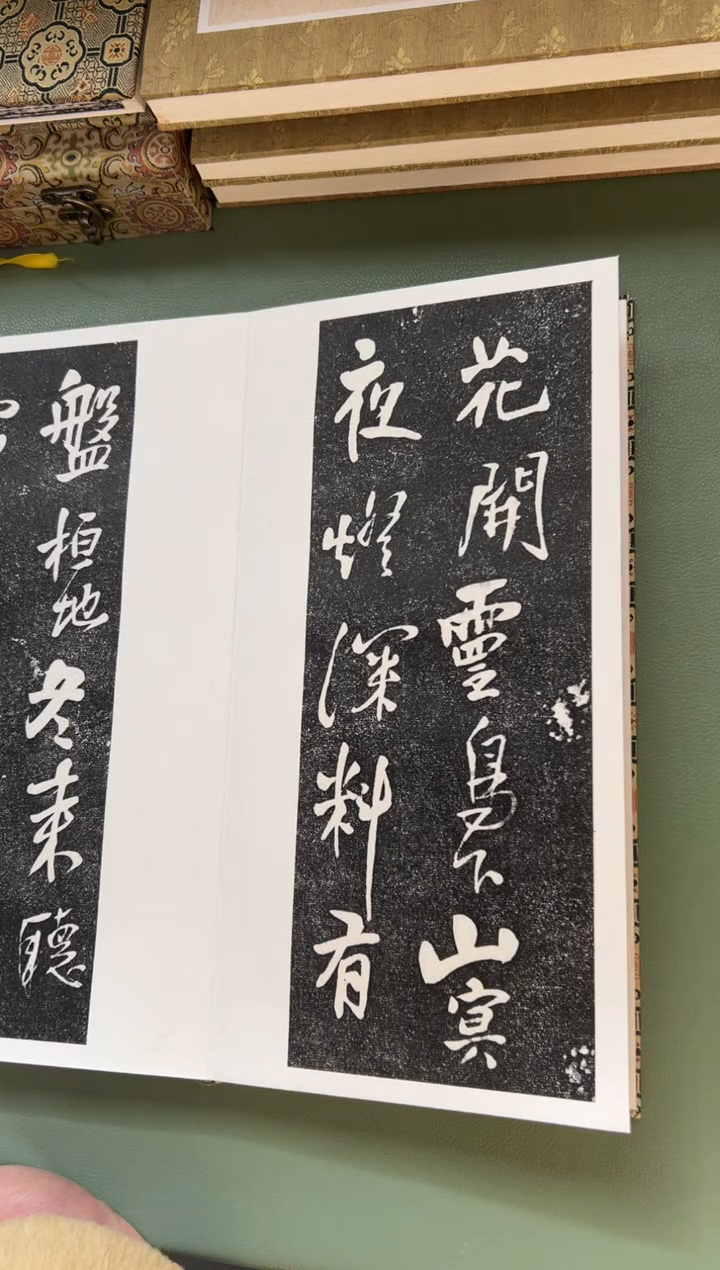 花開靈鳥下山冥
夜燈深料有
盤桓地冬来聽